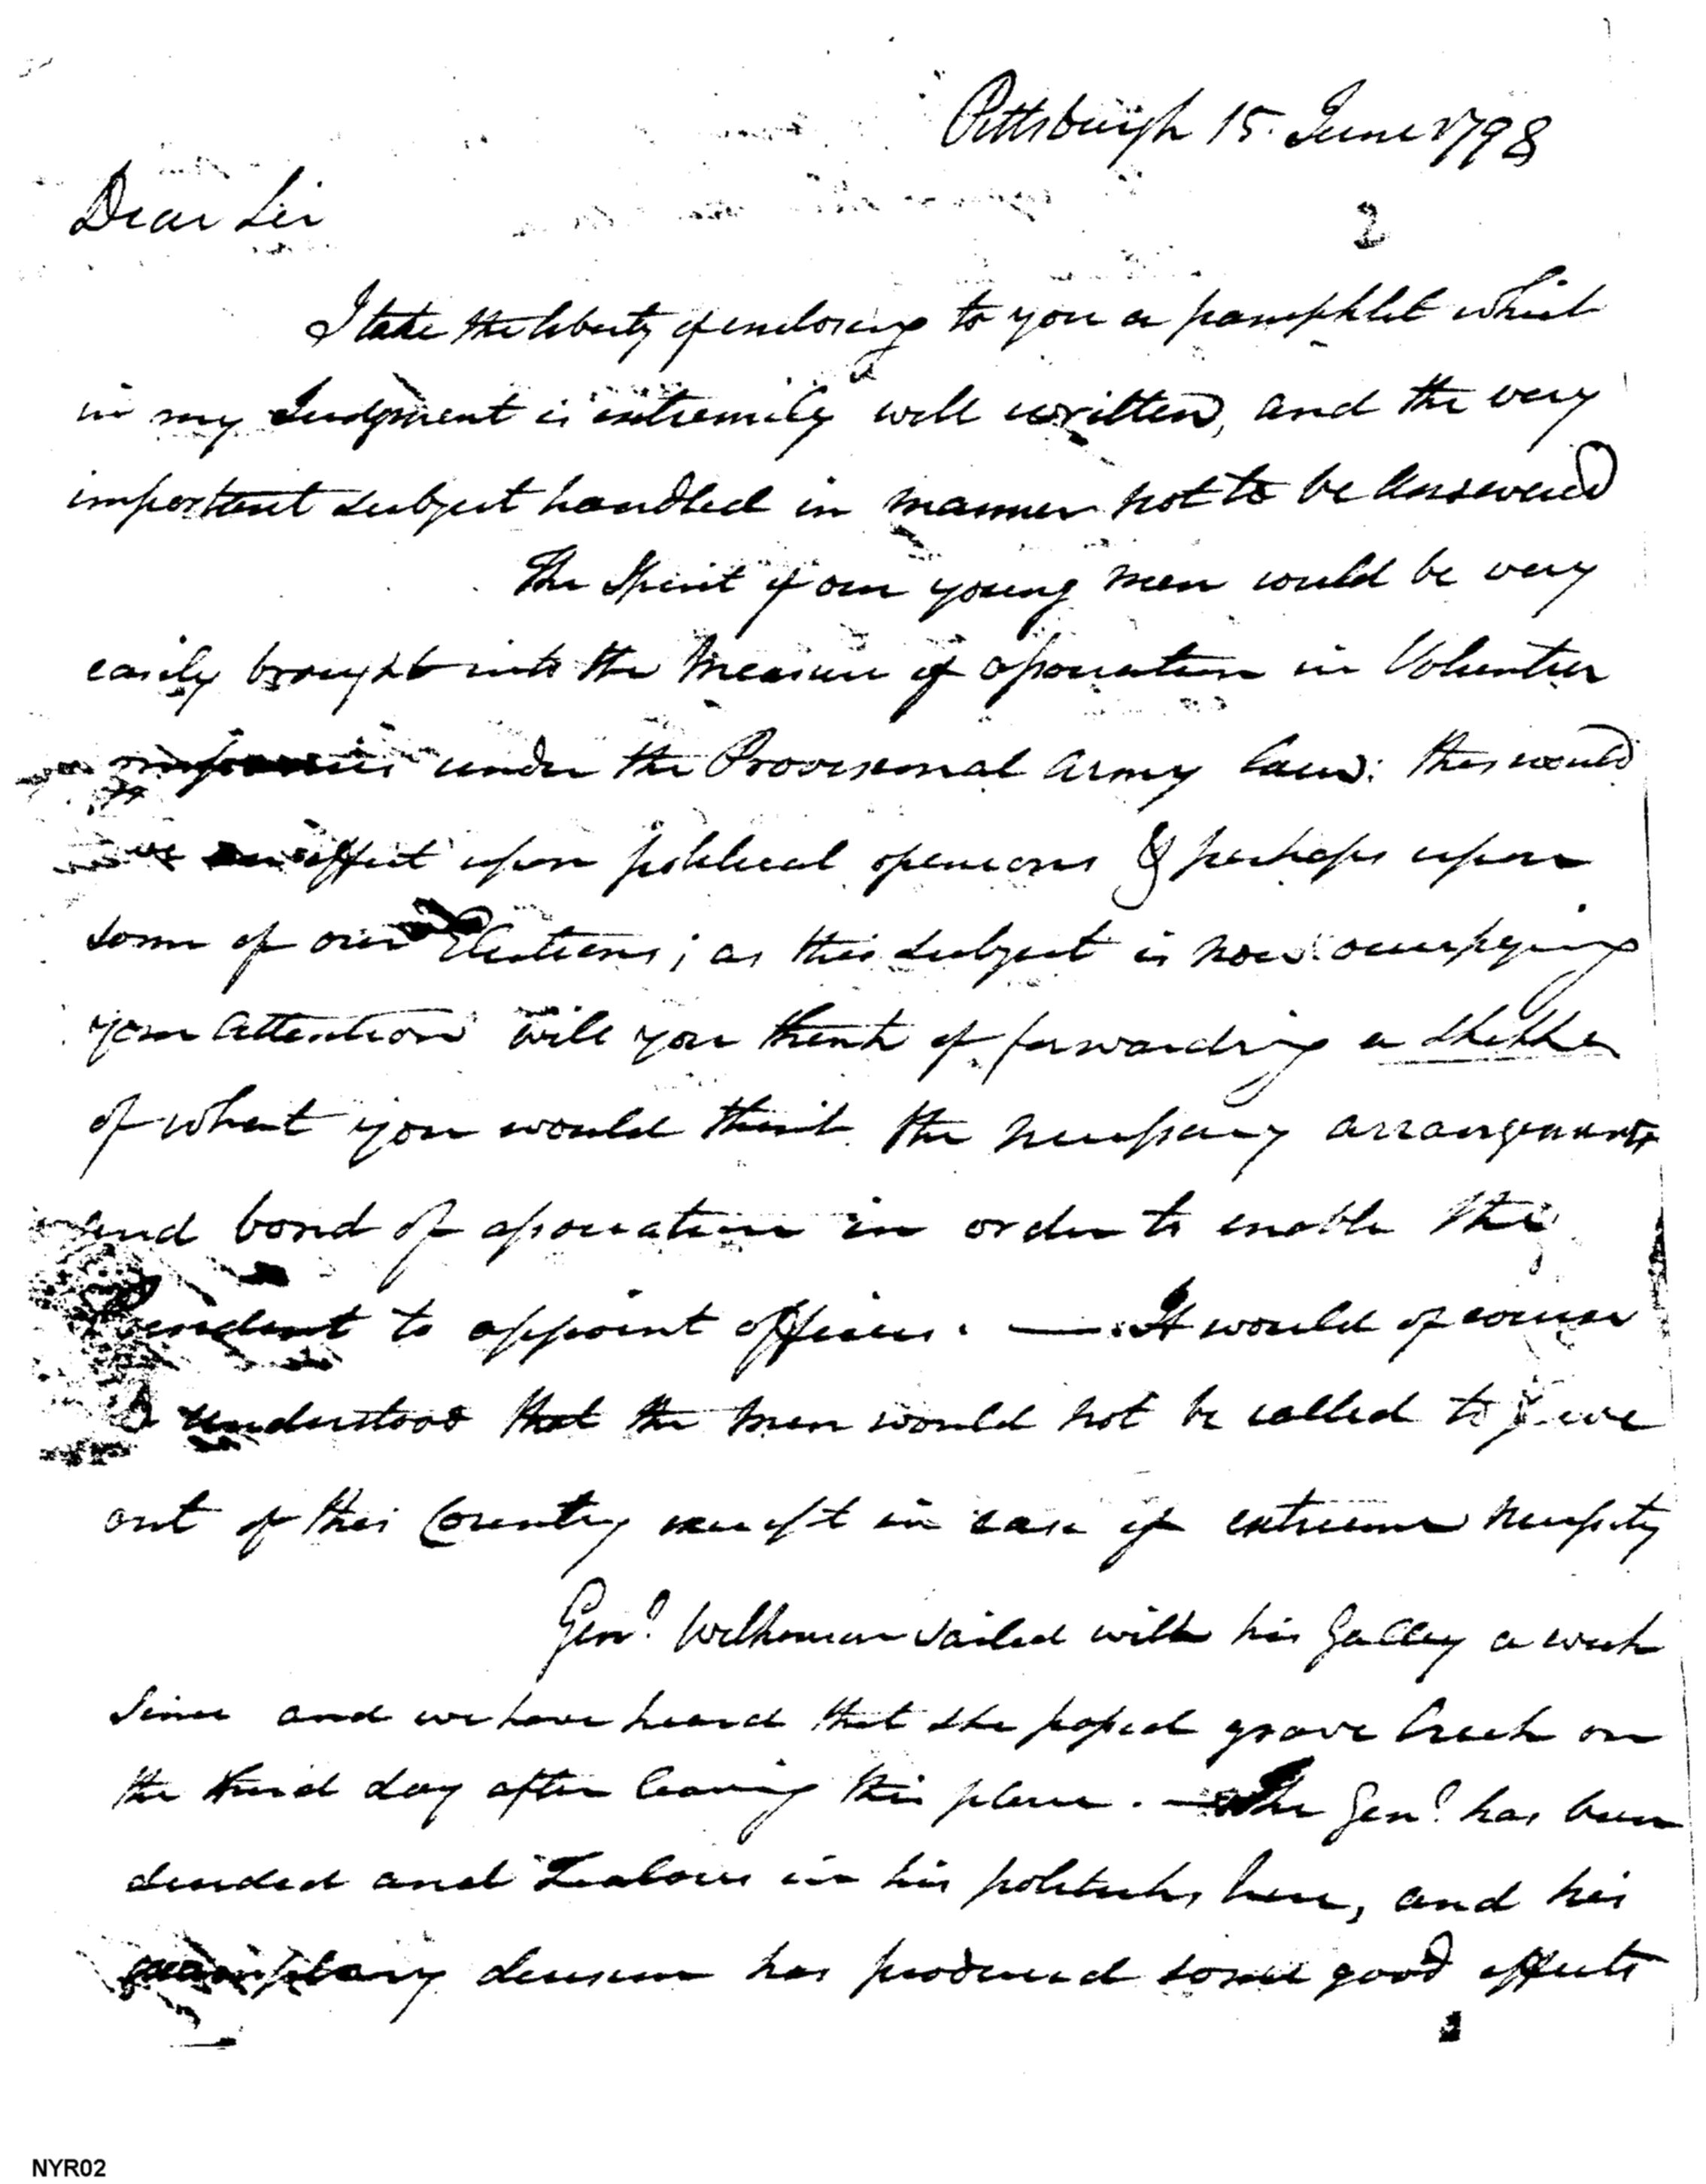 Pittsburgh 15 June 1798
2
Dear Sir
I take the liberty of enclosing to you a pamphlet which
in my Judgment is extremily well written, and the very
important subject handled in manner not to be answered
The Spirit of our young men would be very
easily brought into the measure of association in Volunteer
under the Provisional Army law: this would
an effect upon political openions & perhaps upon
some of our Elections; as this subject is now occupying
your attention will you think of forwarding a sketch
of what you would think the necessary arrangements
and bond of association in order to enable the
President to appoint officers. — It would of course
be understood that the men would not be called to serve
out of this Country except in case of extreme necessity
Genl. Wilkinson sailed with his Galley a week
since and we have heard that she passed grave Creek on
the third day after leaving this place. — The Genl. has been
decided and Zealous in his politicks here, and his
exemplary decision has produced some good effects
NYR02